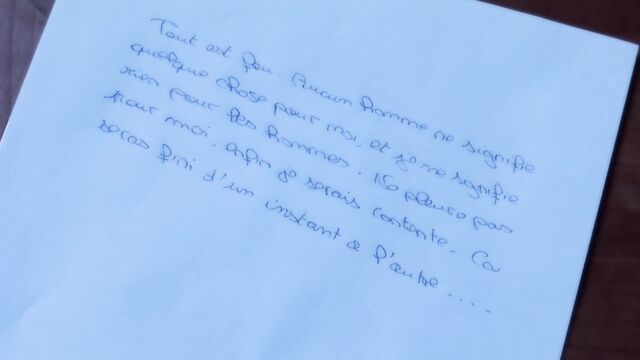 Tout est fou. Aucun homme ne signifie
quelque chose pour moi, et je ne signifie
rien pour les hommes. Ne pleure pas
pour moi, enfin je serais contente. Ca
seras fini d'un instant a l'autre.....